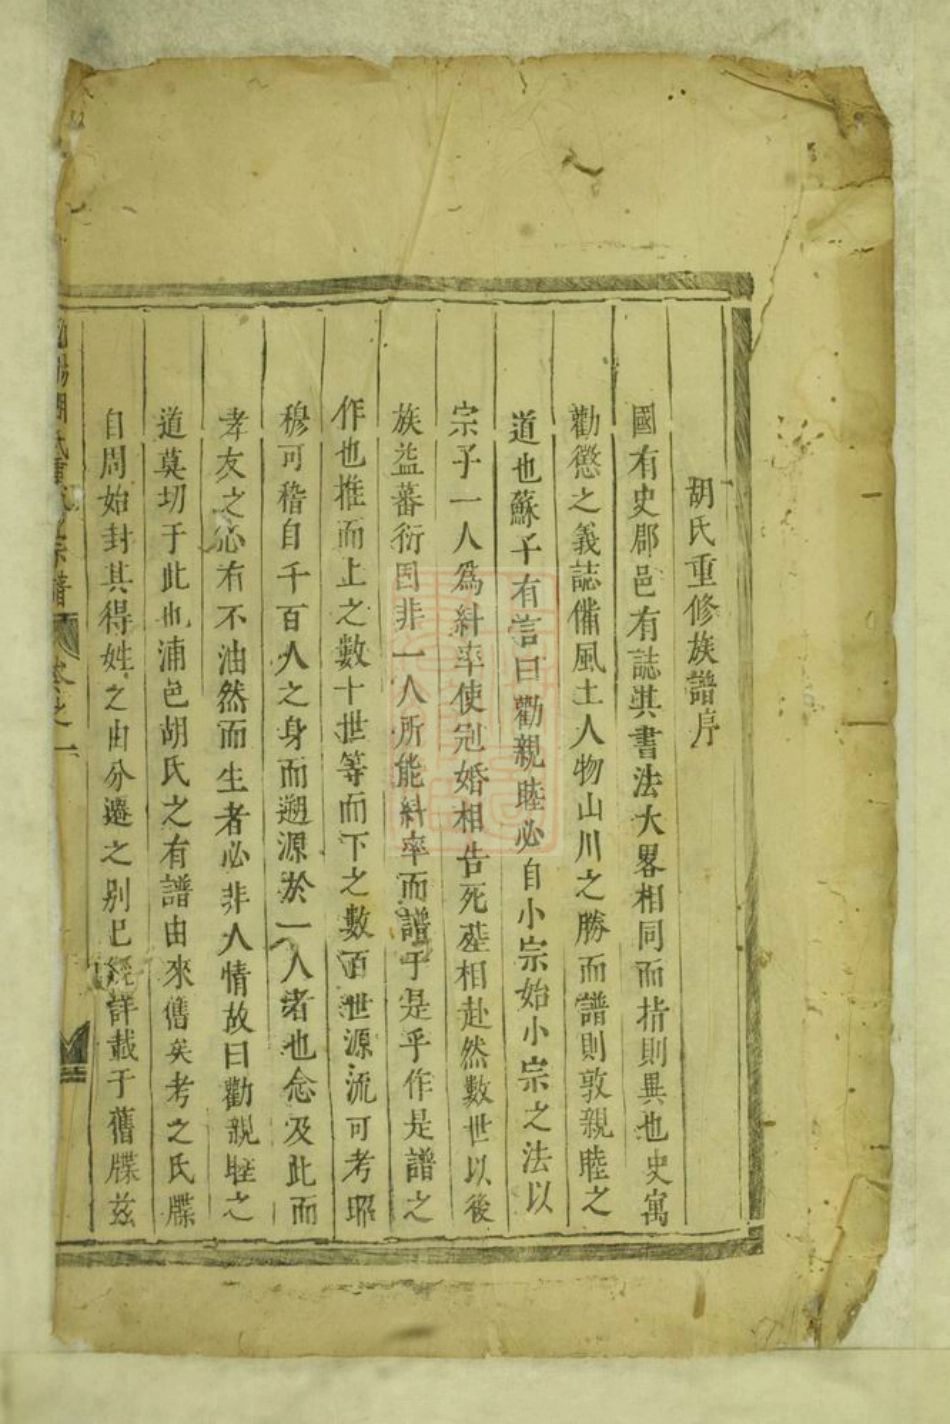 胡氏重修族譜序
國有史郡邑有誌其書法大畧相同而指則異也史寓
勸懲之義誌備風土人物山川之勝而譜則敦親睦之
道也蘇子有言曰勸親睦必自小宗始小宗之法以
宗子一人為糾率使冠婚相告死塟相赴然數世以後
族益蕃衍固非一人所能糾率而譜于是乎作是譜之
作也推而上之數十世等而下之數百世源流可考昭
穆可稽自千百人之身而遡源於一人者也念及此而
孝友之心有不油然而生者必非人情故曰勸親睦之
道莫切于此也浦邑胡氏之有譜由來舊矣考之氏牒
自周始封其得姓之由分遷之別已經詳載于舊牒茲
陽胡氏重修宗譜 卷之一